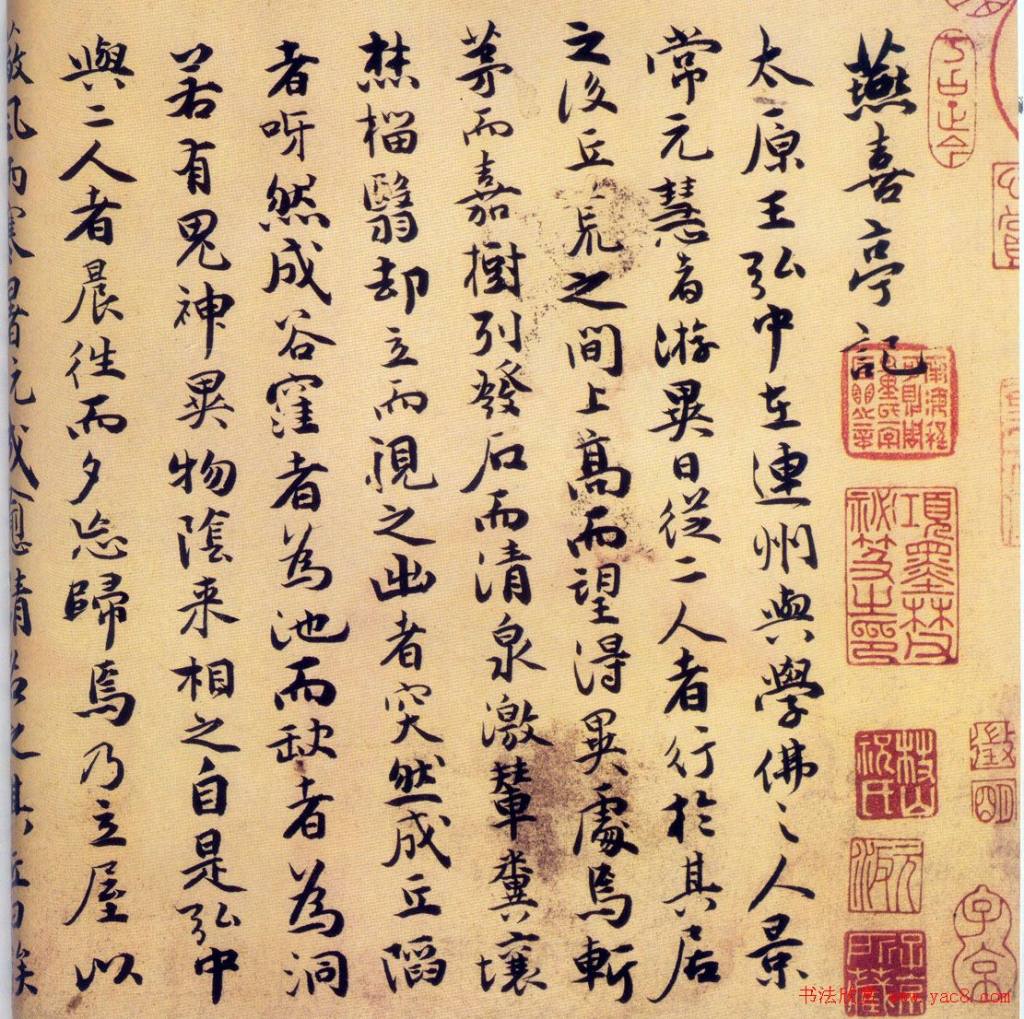 燕喜亭記
太原王弘中在連州與學佛之人景
常元慧者游異日從二人者行於其居
之後丘荒之間上高而望得異處焉斬
茅而嘉樹列發石而清泉激輦糞壤
焚椔翳却立而視之出者突然成丘陷
者呀然成谷窪者為池而缺者為洞
若有鬼神異物陰来相之自是弘中
與二人者晨往而夕忘歸焉乃立屋以
蔽風雨寒暑既成愈請名之其丘曰俟
項墨林祕笈之印
徵明
子京
书法欣赏 www.yac8.com